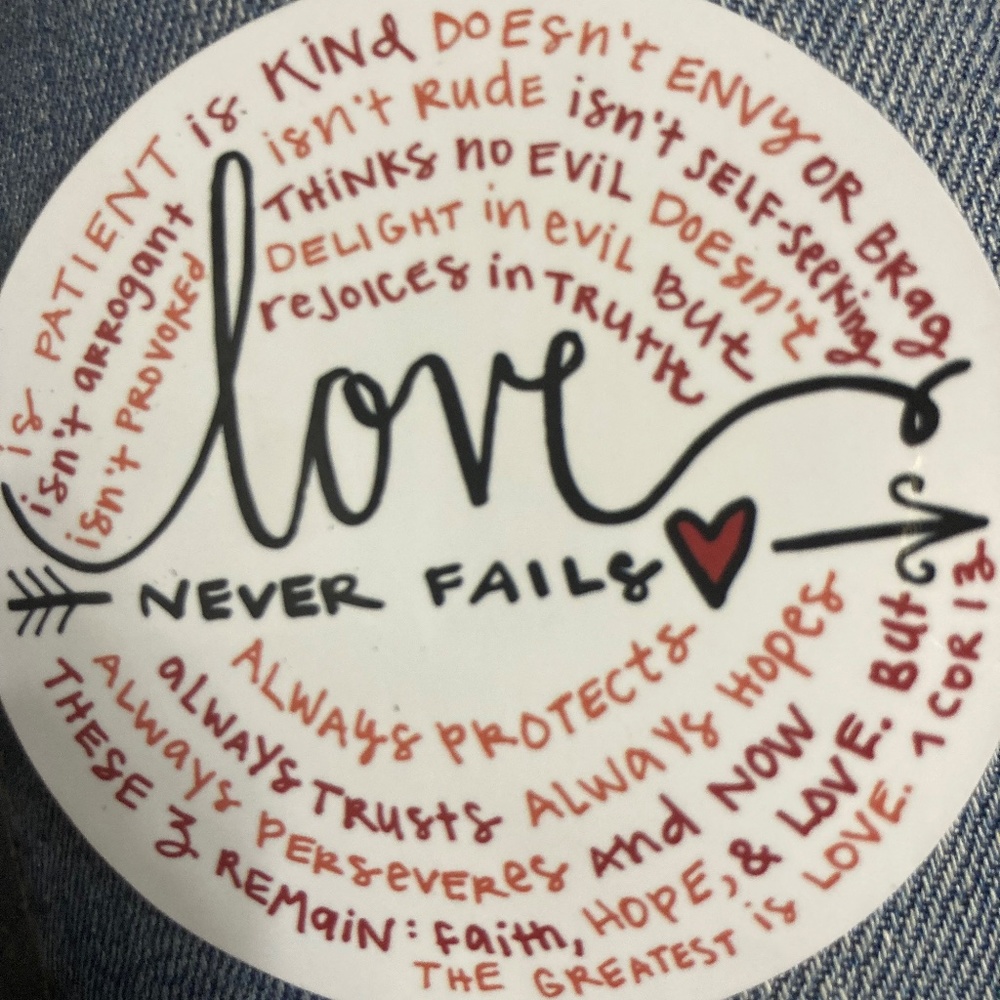 is PATIENT is KiNd DOEsn't ENVy OR BRag
isn't aRRogant isn't RUDE isn't SELF-seeking
isn't PROVOKEd THiNKs no EViL DOEsn't
DELIGHT in eviL BUt
rejoices in TRUth
love
NEVER FAILs
ALWAYs PROTECts
aLWAYs TRUsts ALWaYs HOPEs
ALWays PERseVEREs and NOW
THESE 3 REMaiN: Faith, HOPE, & LOVE. BUt
THE GREATEST is LOVE. 1 COR 13